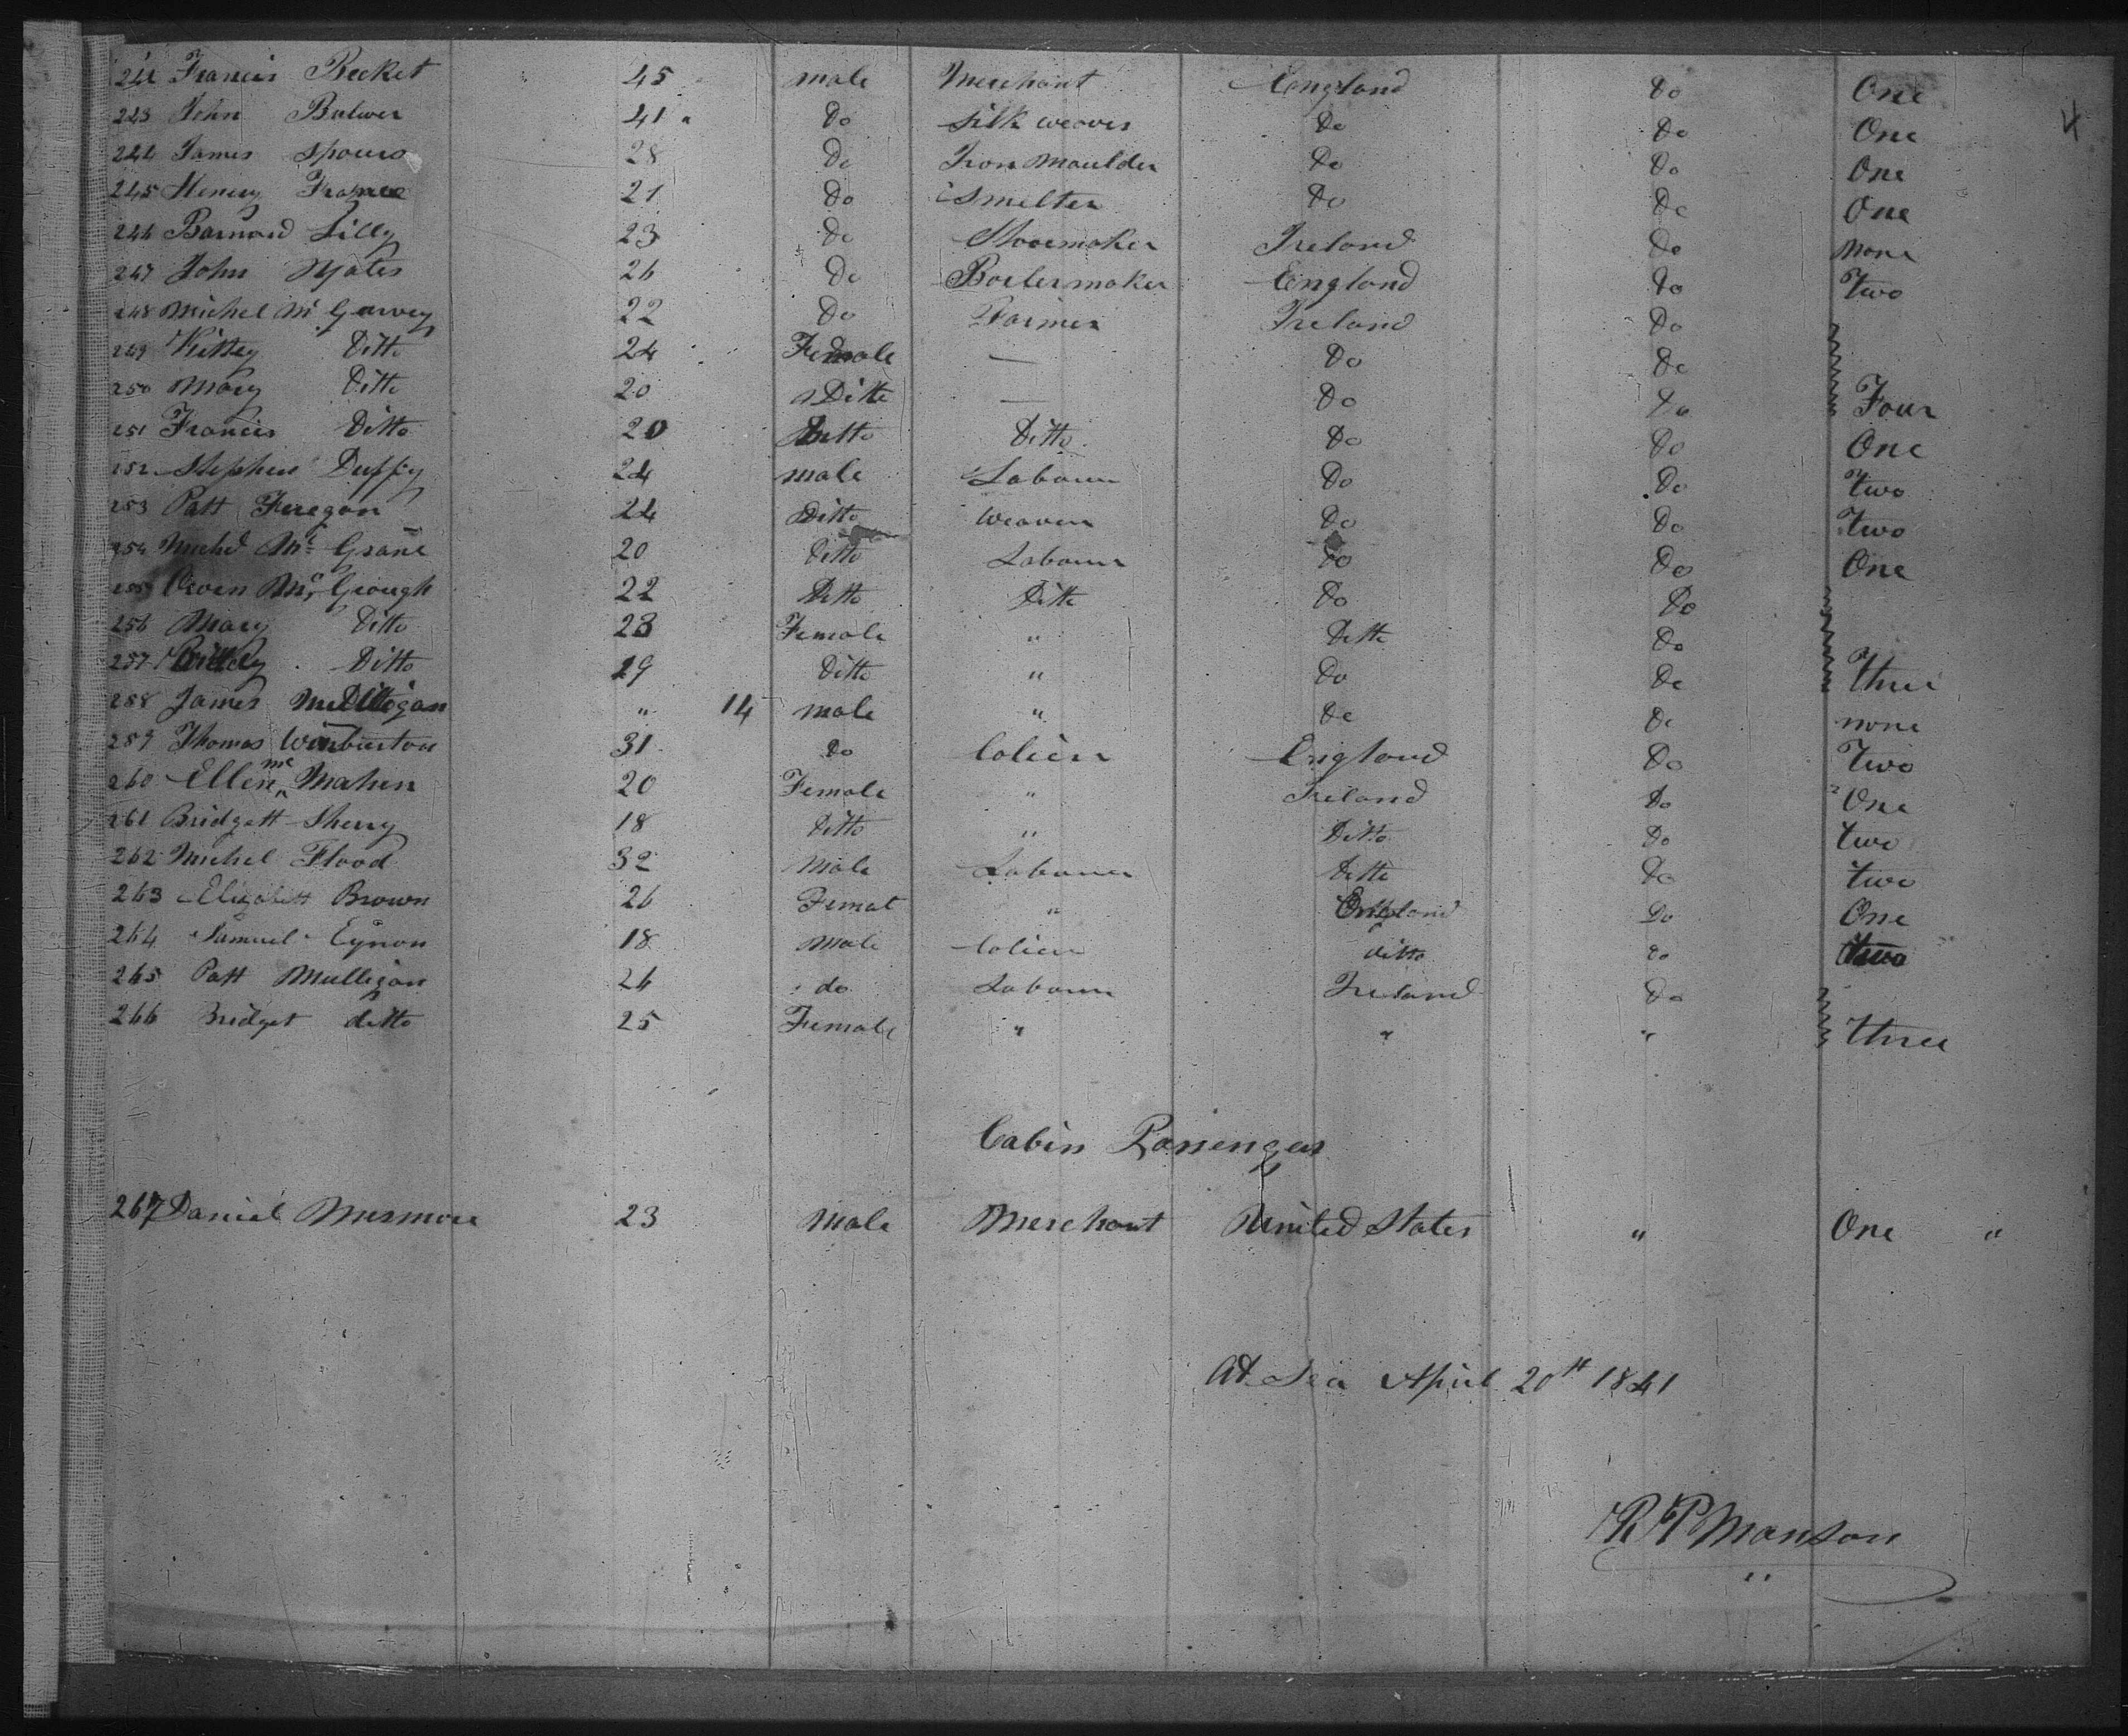 242 Francis Becket 45 male Merchant England Do One
4
243 John Bulwer 41 Do Silk weaver Do Do One
244 James Spours 28 Do Iron Moulder Do Do One
245 Henry France 21 Do Smelter Do Do One
246 Barnard Lilly 23 Do Shoemaker Ireland Do none
247 John Yates 26 Do Boilermaker England Do Two
248 Michel Mc Garvey 22 Do Farmer Ireland Do
249 Kittey Ditto 24 Female — Do Do
250 Mary Ditto 20 Ditto — Do Do Four
251 Francis Ditto 20 Ditto Ditto Do Do One
252 Stephen Duffy 24 male Labourer Do Do Two
253 Patt Finegan 24 Ditto Weaver Do Do Two
254 Michel Mc Grane 20 Ditto Labourer Do Do One
255 Owen Mc Gough 22 Ditto Ditto Do Do
256 Mary Ditto 23 Female " Ditto Do
257 Ditto 29 Ditto " Do Do three
258 James " 14 male " Do Do none
259 Thomas Winburton 31 Do Colier England Do Two
260 Ellen mc Mahen 20 Female " Ireland Do One
261 Bridgett Sherry 18 Ditto " Ditto Do two
262 Michel Flood 32 Male Labourer Ditto Do two
263 Elizabett Brown 26 Femal " England Do One
264 Samuel Eynon 18 Male Colier ditto Do two
265 Patt Mulligan 26 do Labourer Ireland Do
266 Bridget ditto 25 Female " " " three
Cabin Passenger
267 Daniel 23 Male Merchant United States " One "
At Sea April 20th 1841
R P Manson